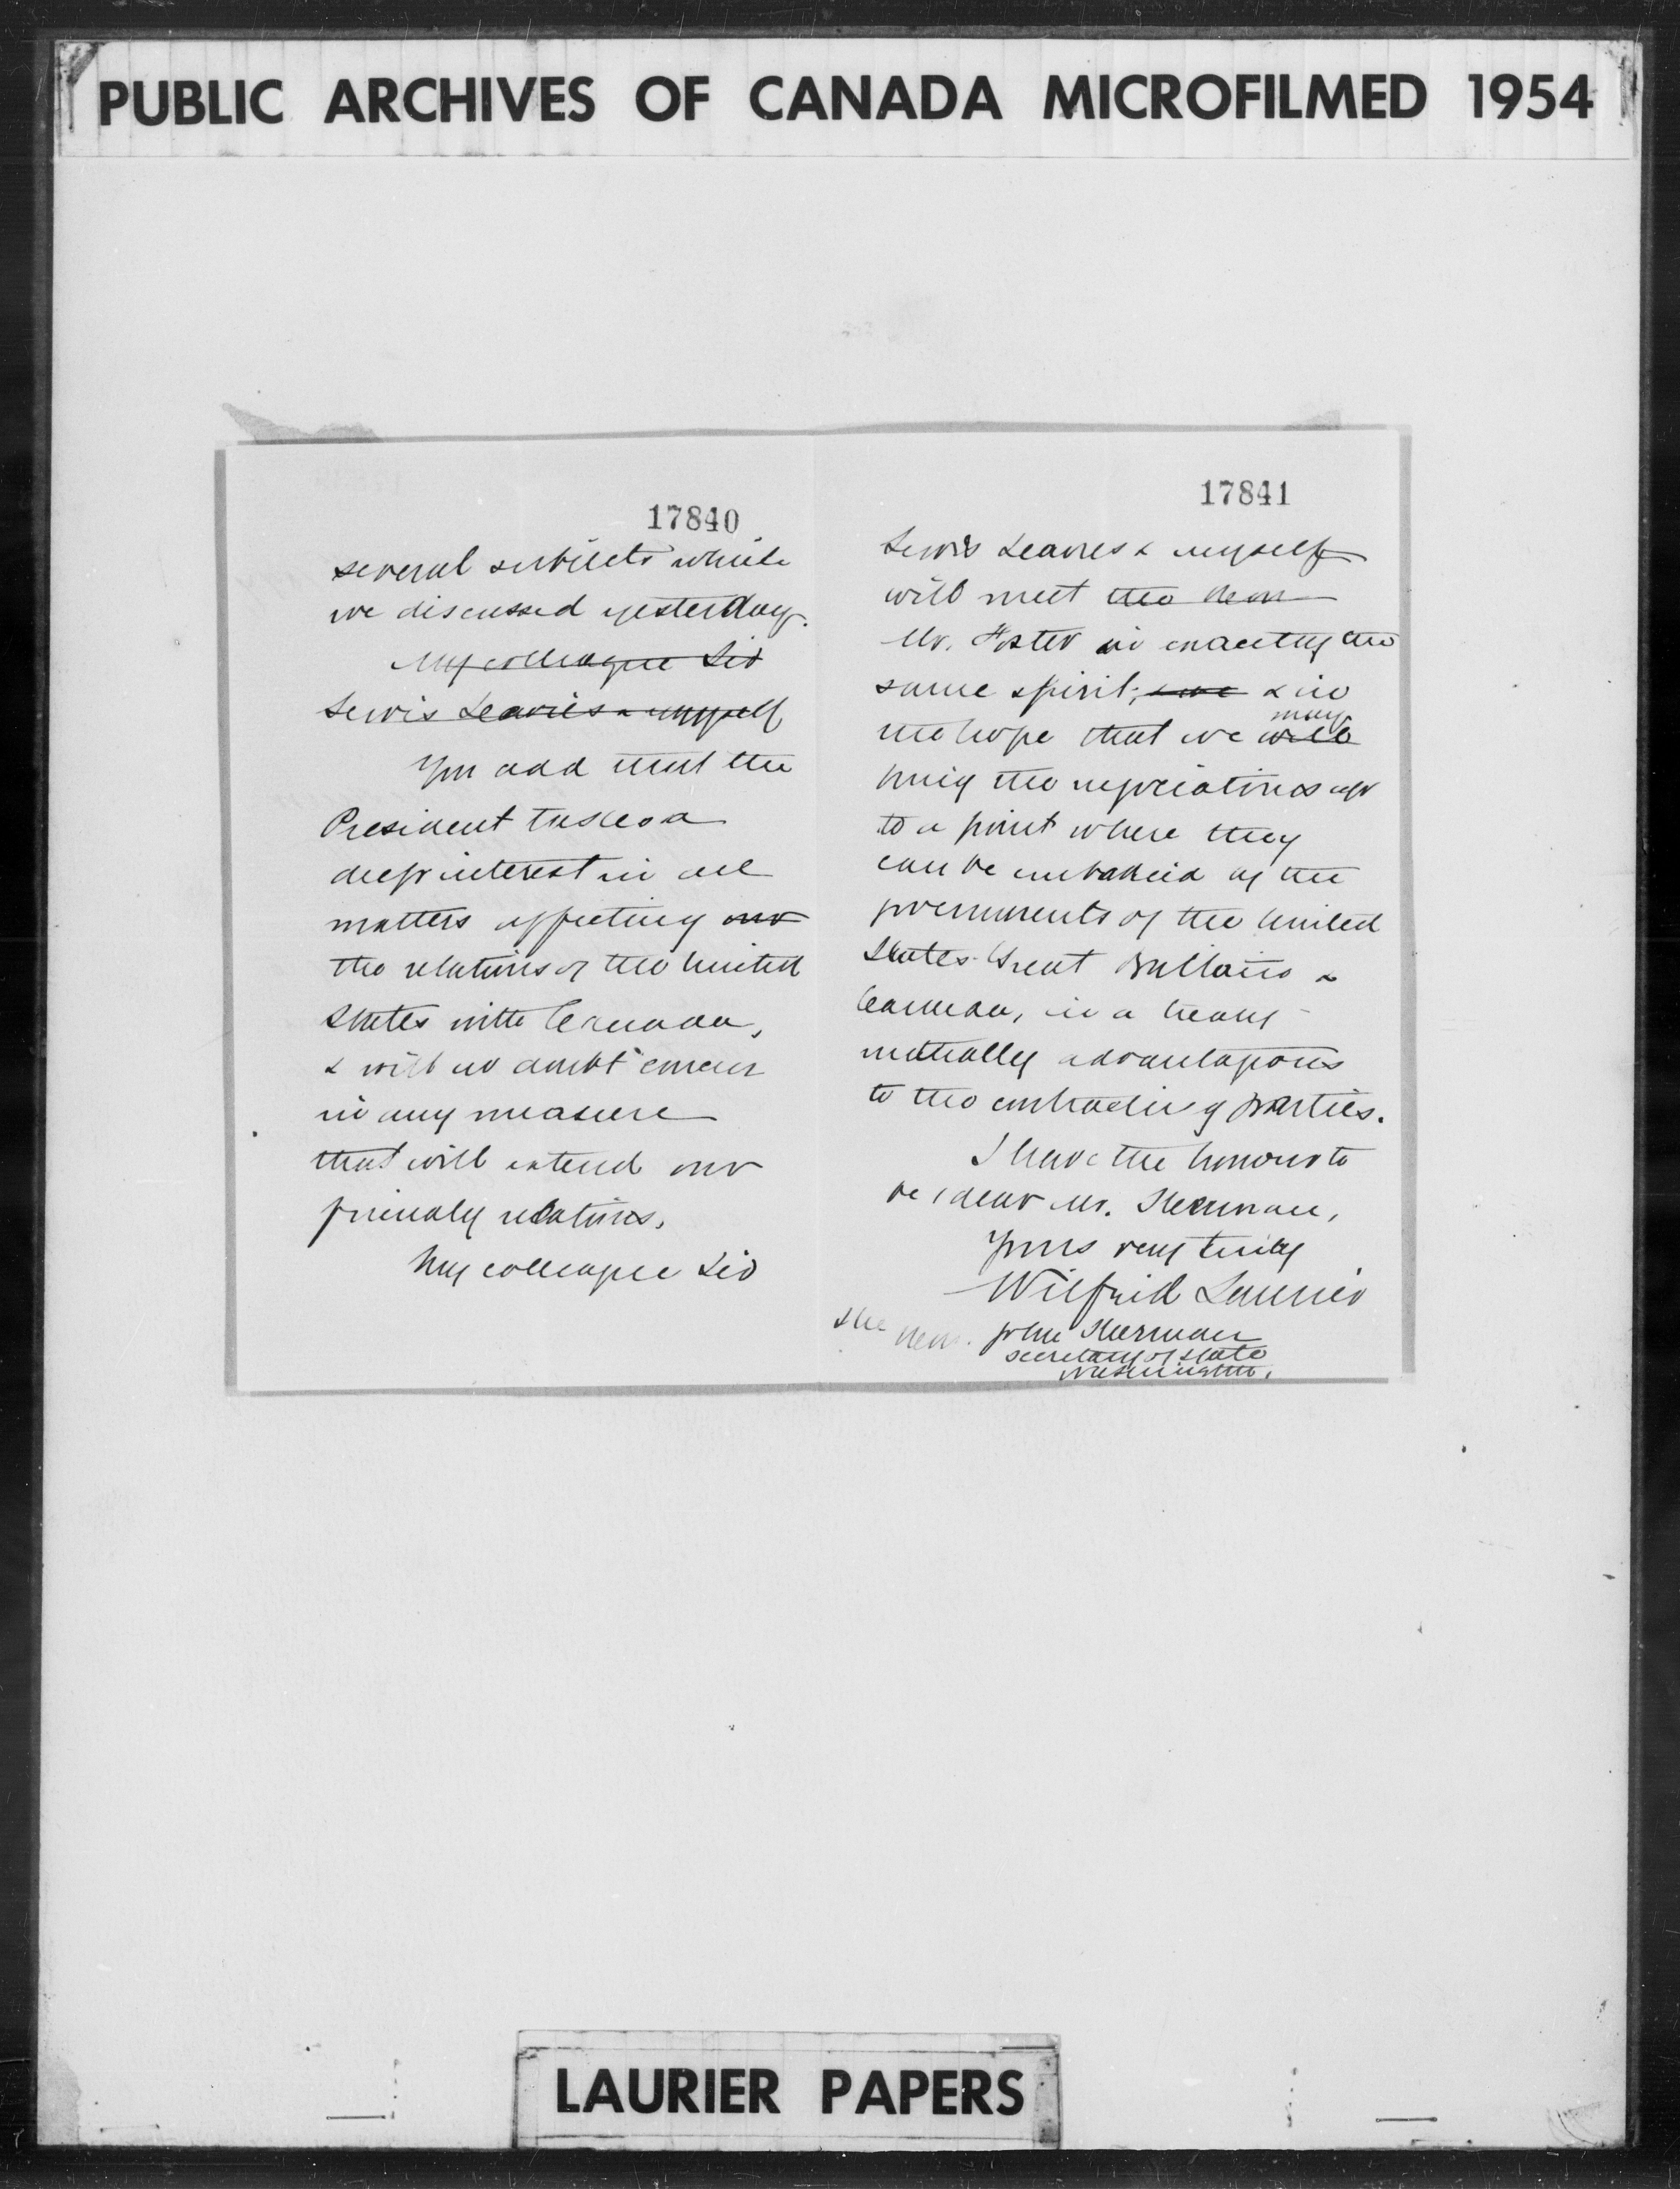 PUBLIC ARCHIVES OF CANADA MICROFILMED 1954
17840
several subjects which
we discussed yesterday.
My colleague Sir
Lewis Davies & myself
You add that the
President takes a
deep interest in all
matters affecting our
the relations of the United
States with Canada,
& will no doubt concur
in any measure
that will extend our
friendly relations.
My colleague Sir
17841
Lewis Davies & myself
will meet the Hon
Mr. Foster in exactly the
same spirit, & we & in
may
the hope that we will
bring the negotiations up
to a point where they
can be embodied by the
governments of the United
States Great Britain &
Canada, in a treaty
mutually advantageous
to the contracting parties.
I have the honour to
be, dear Mr. Sherman,
Yours very truly
Wilfrid Laurier
The Hon. John Sherman
Secretary of State
Washington.
LAURIER PAPERS